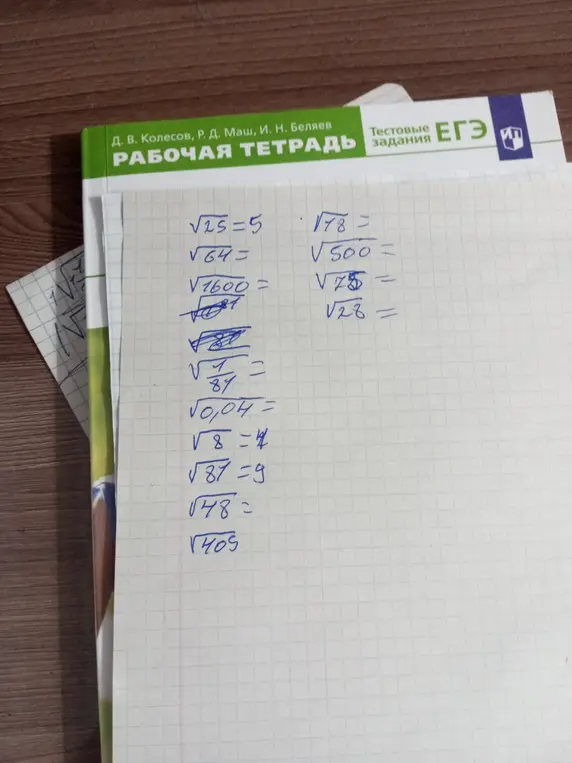 Д. В. Колесов, Р. Д. Маш, И. Н. Беляев
РАБОЧАЯ ТЕТРАДЬ
Тестовые
задания ЕГЭ
√25 = 5
√64 =
√1600 =
√81
√(1/81) =
√0,04 =
√8 =
√81 = 9
√48 =
√405
√18 =
√500 =
√75 =
√28 =